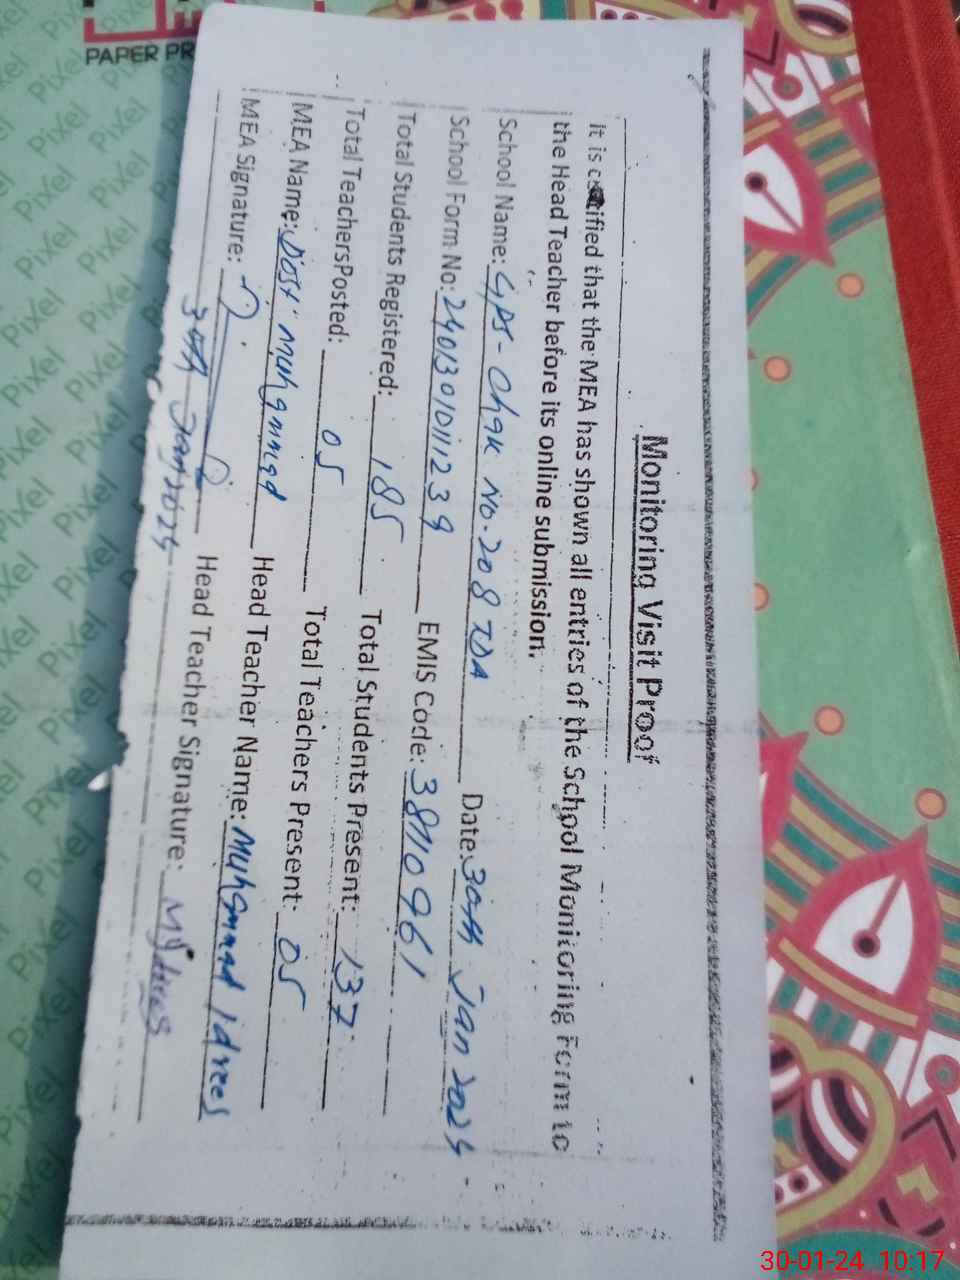 Monitoring Visit Proof
It is certified that the MEA has shown all entries of the School Monitoring Form to
the Head Teacher before its online submission.
School Name: GPS-Chak No.208 TDA Date: 30th Jan 2024
School Form No: 24013010111239 EMIS Code: 38110961
Total Students Registered: 185 Total Students Present: 137
Total TeachersPosted: 05 Total Teachers Present: 05
MEA Name: Dost Muhammad Head Teacher Name: Muhammad Idrees
MEA Signature: Head Teacher Signature: M Idrees
30th Jan 2024
PAPER PR
Pixel
30-01-24 10:17